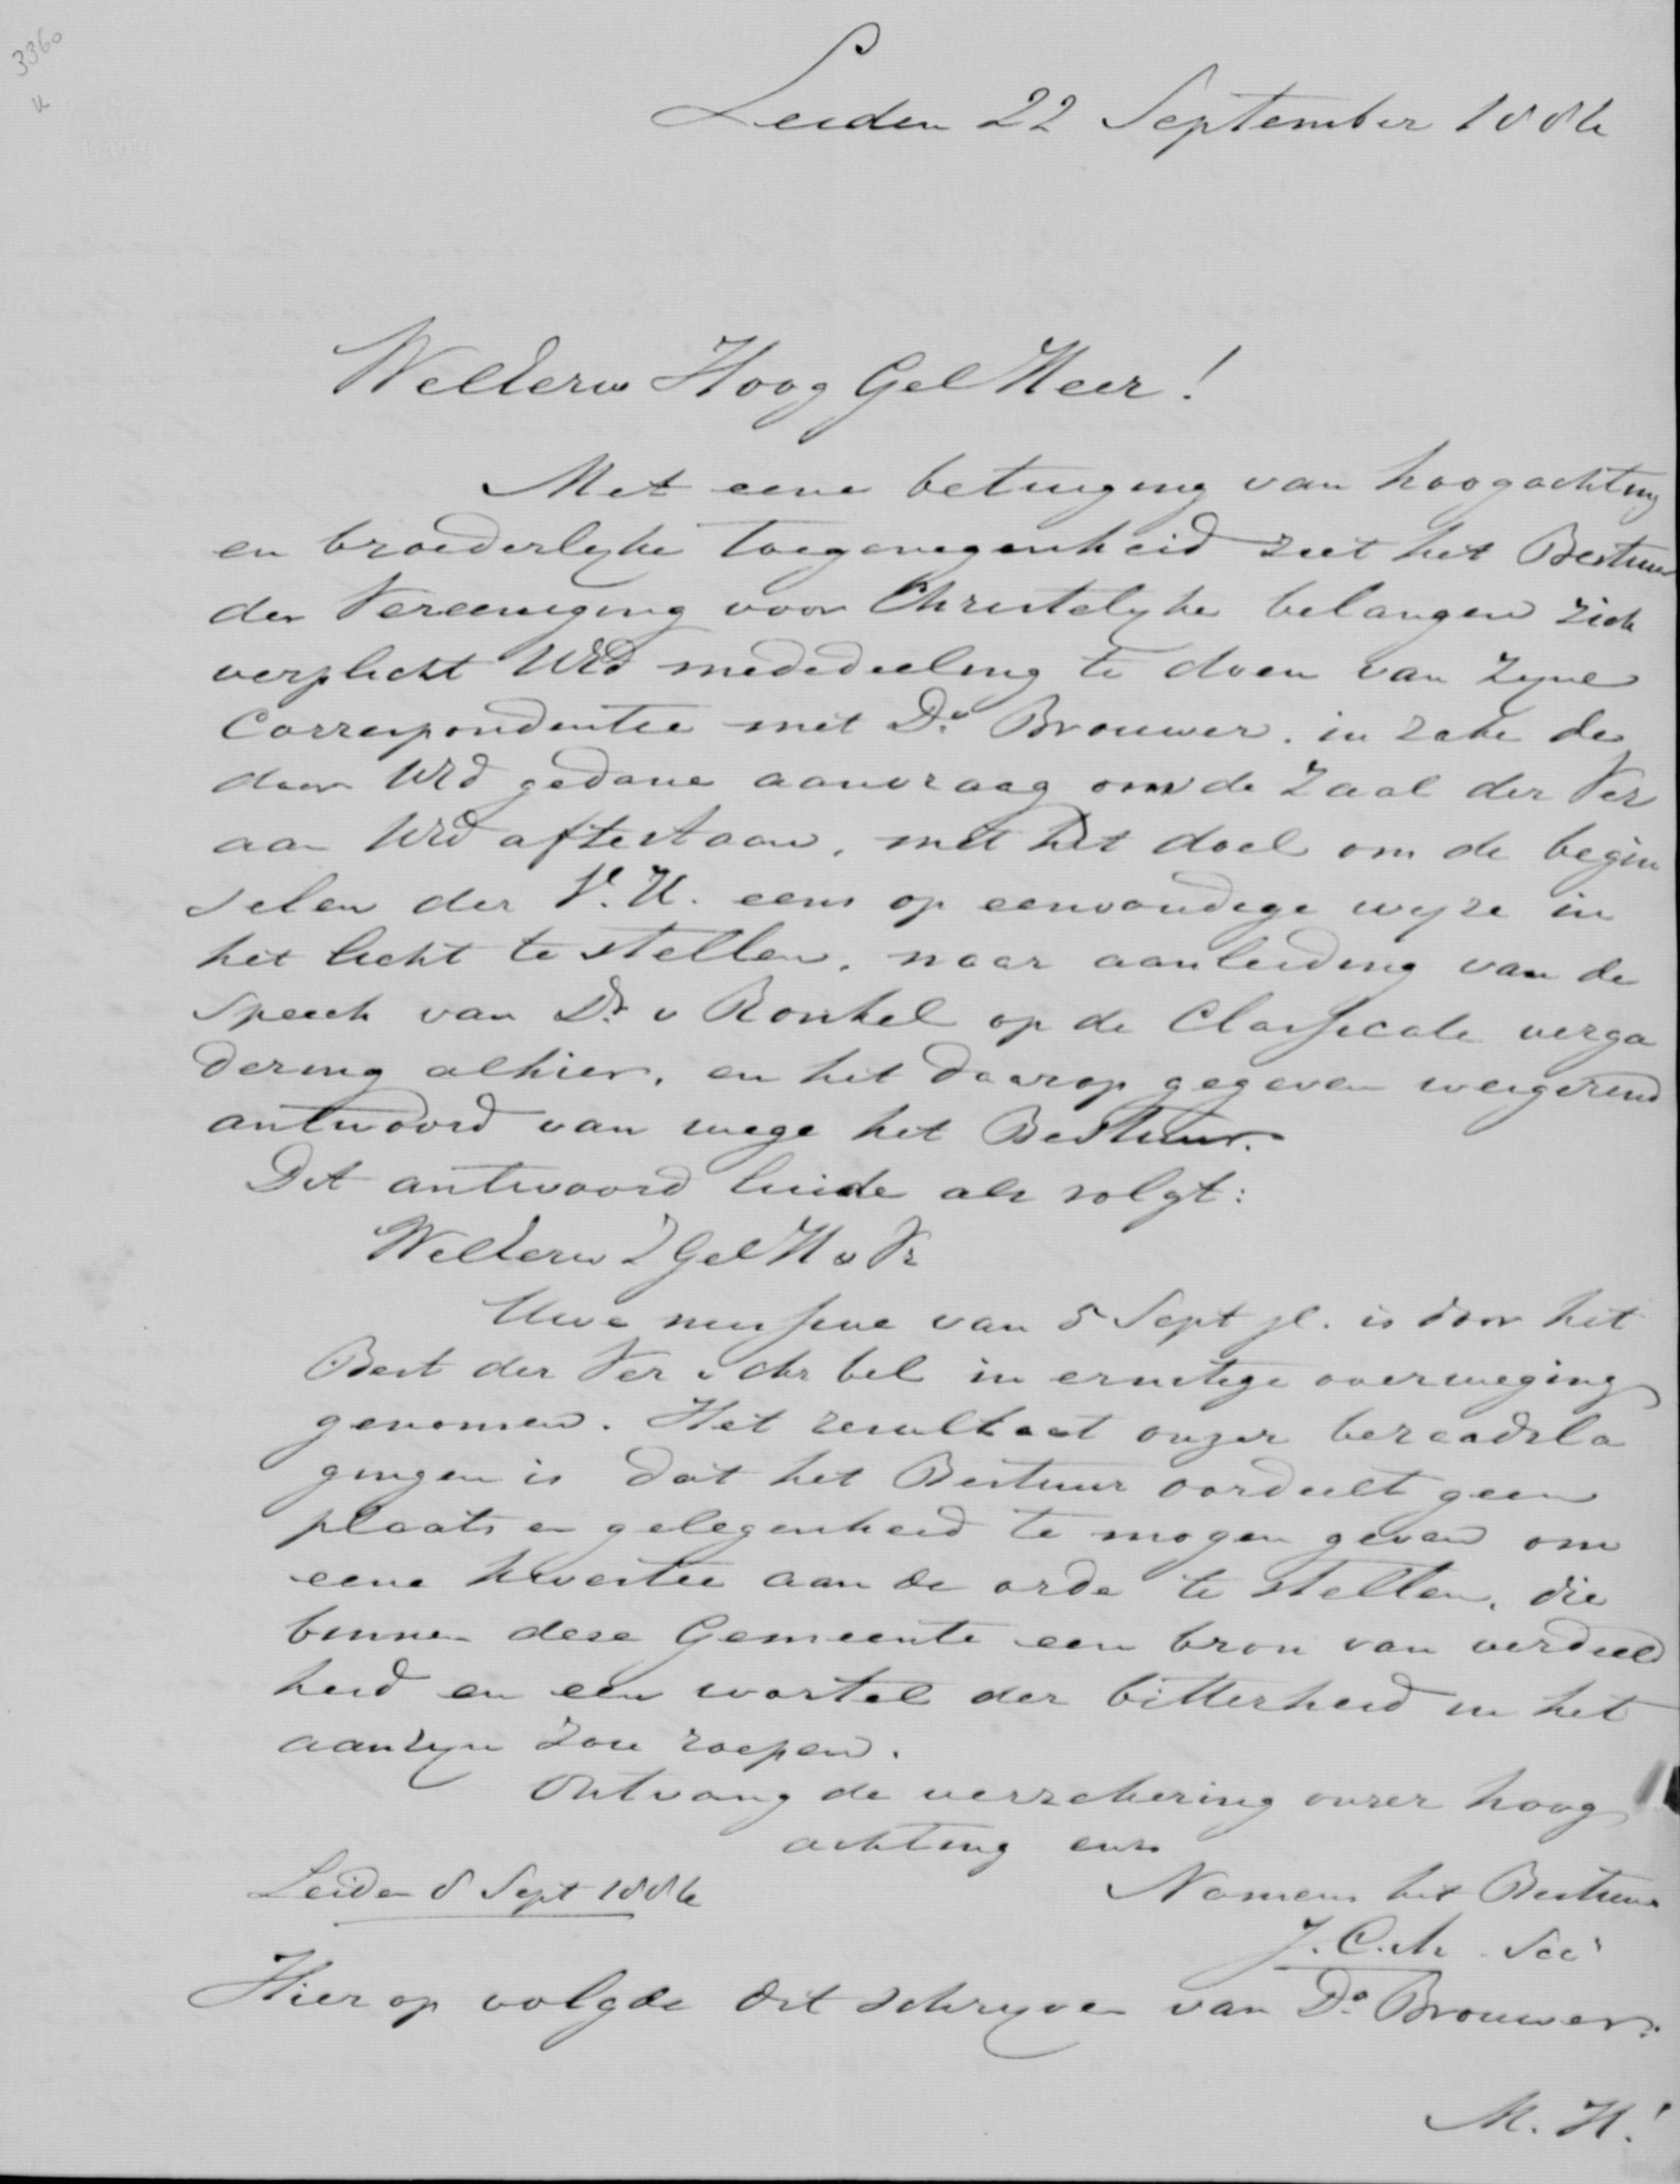 3360
u
Leiden 22 September 1886
WelEerw Hoog Gel Heer!
Met eene betuiging van hoogachting
en broederlyke toegenegenheid ziet het Bestuur
der Vereeniging voor Christelyke belangen zich
verplicht UEd mededeeling te doen van zyne
Correspondentie met Ds Brouwer. in zake de
door UEd gedane aanvraag om de zaal der Ver
aan UEd aftestaan, met het doel om de begin
selen der V. U. eens op eenvoudige wyze in
het licht te stellen, naar aanleiding van de
speech van Dr v Ronkel op de Classicale verga
dering alhier, en het daarop gegeven weigerend
antwoord van wege het Bestuur.
Dit antwoord luide als volgt:
WelEerw Z Gel H & Vr
Uwe missive van 5 Sept jl. is door het
Best der Ver v chr bel in ernstige overweging
genomen. Het resultaat onzer beraadsla
gingen is dat het Bestuur oordeelt geen
plaats en gelegenheid te mogen geven om
eene kwestie aan de orde te stellen, die
binnen deze Gemeente een bron van verdeeld
heid en een wortel der bitterheid in het
aanzyn zou roepen.
Ontvang de verzekering onzer hoog
achting enz
Leiden 8 Sept 1886
Namens het Bestuur
J. C. Sec
Hier op volgde dit schryven van Ds Brouwer.
M. H!